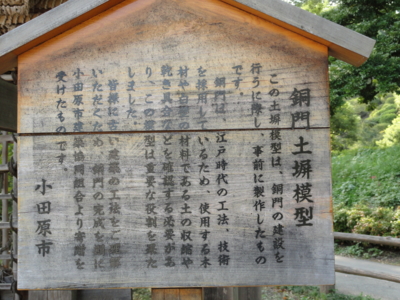 銅門土塀模型
この土塀模型は、銅門の建設を
行うに際し、事前に製作したもの
です。
銅門は、江戸時代の工法、技術
を採用しているため、使用する木
材や白壁の材料である土の収縮や
乾き具合などを確認する必要があ
り、この模型は重要な役割を果た
しました。
皆様に古い建築の工法をご理解
いただくため、銅門の完成を機に
小田原市建築協同組合より寄贈を
受けたものです。
小田原市